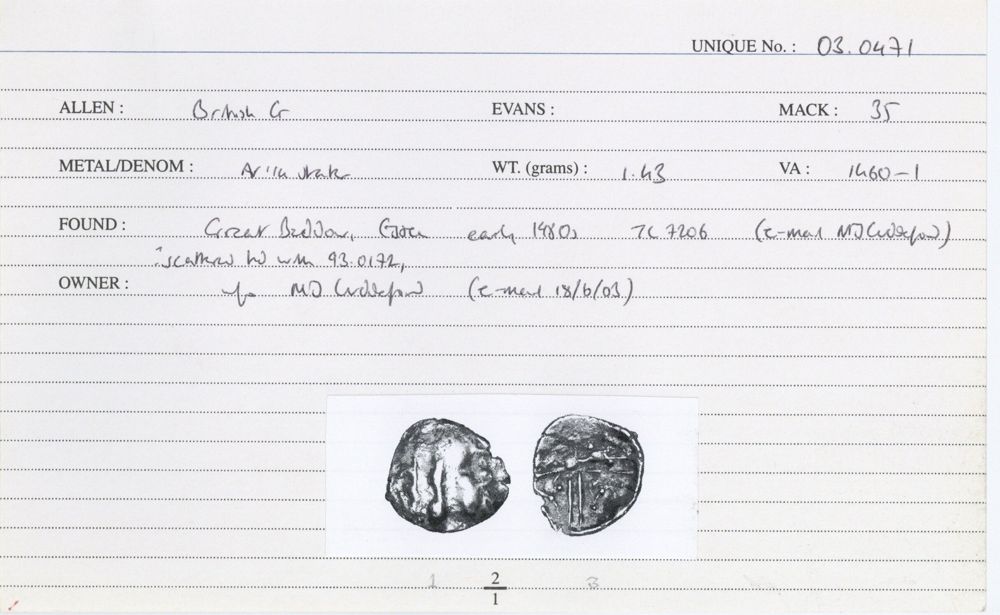 UNIQUE No. : 03.0471
ALLEN : British G EVANS : MACK : 35
METAL/DENOM : AV 1/4 stater WT. (grams) : 1.43 VA : 1460-1
FOUND : Great Baddow, Essex early 1980s TL 7206 (e-mail MJ Cuddeford)
?scattered hd with 93.0172,
OWNER : MJ Cuddeford (e-mail 18/6/03)
2
1